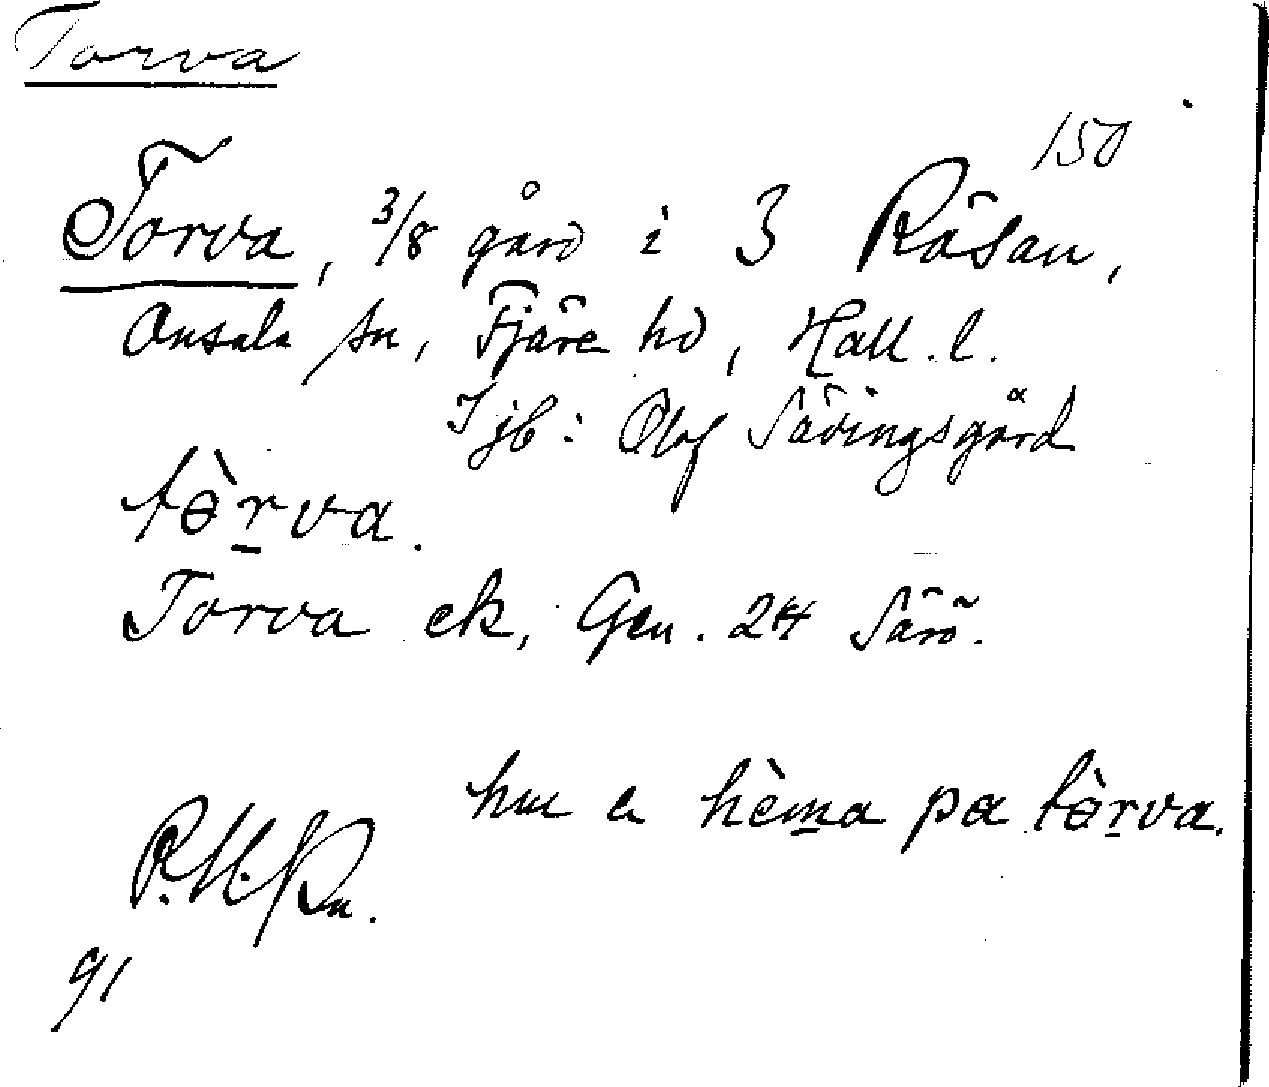 Torva
150
Torva, 3/8 gård i 3 Räsan,
Onsala sn, Fjäre hd, Hall. l.
I jb: Olof Sävingsgård
tɵ̀r̲va.
Torva ek, Gen. 24 Särö.
hu a hèm̲a pa tɵ̀r̲va.
91